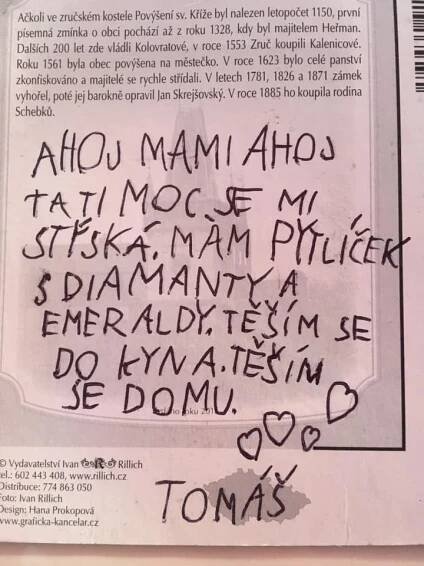 Ačkoli ve zručském kostele Povýšení sv. Kříže byl nalezen letopočet 1150, první
písemná zmínka o obci pochází až z roku 1328, kdy byl majitelem Heřman.
Dalších 200 let zde vládli Kolovratové, v roce 1553 Zruč koupili Kalenicové.
Roku 1561 byla obec povýšena na městečko. V roce 1623 bylo celé panství
zkonfiskováno a majitelé se rychle střídali. V letech 1781, 1826 a 1871 zámek
vyhořel, poté jej barokně opravil Jan Skrejšovský. V roce 1885 ho koupila rodina
Schebků.
AHOJ MAMI AHOJ
TATI MOC SE MI
STÝSKÁ. MÁM PYTLÍČEK
S DIAMANTY A
EMERALDY. TĚŠÍM SE
DO KYNA. TĚŠÍM
SE DOMU.
roku
© Vydavatelství Ivan R Rillich
tel.: 602 443 408, www.rillich.cz
Distribuce: 774 863 050
Foto: Ivan Rillich
Design: Hana Prokopová
www.graficka-kancelar.cz
TOMÁŠ